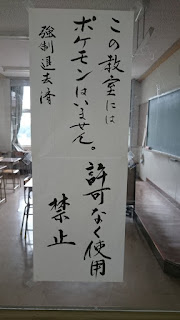 この教室には
ポケモンはいません。
強制退去済
許可なく使用
禁止